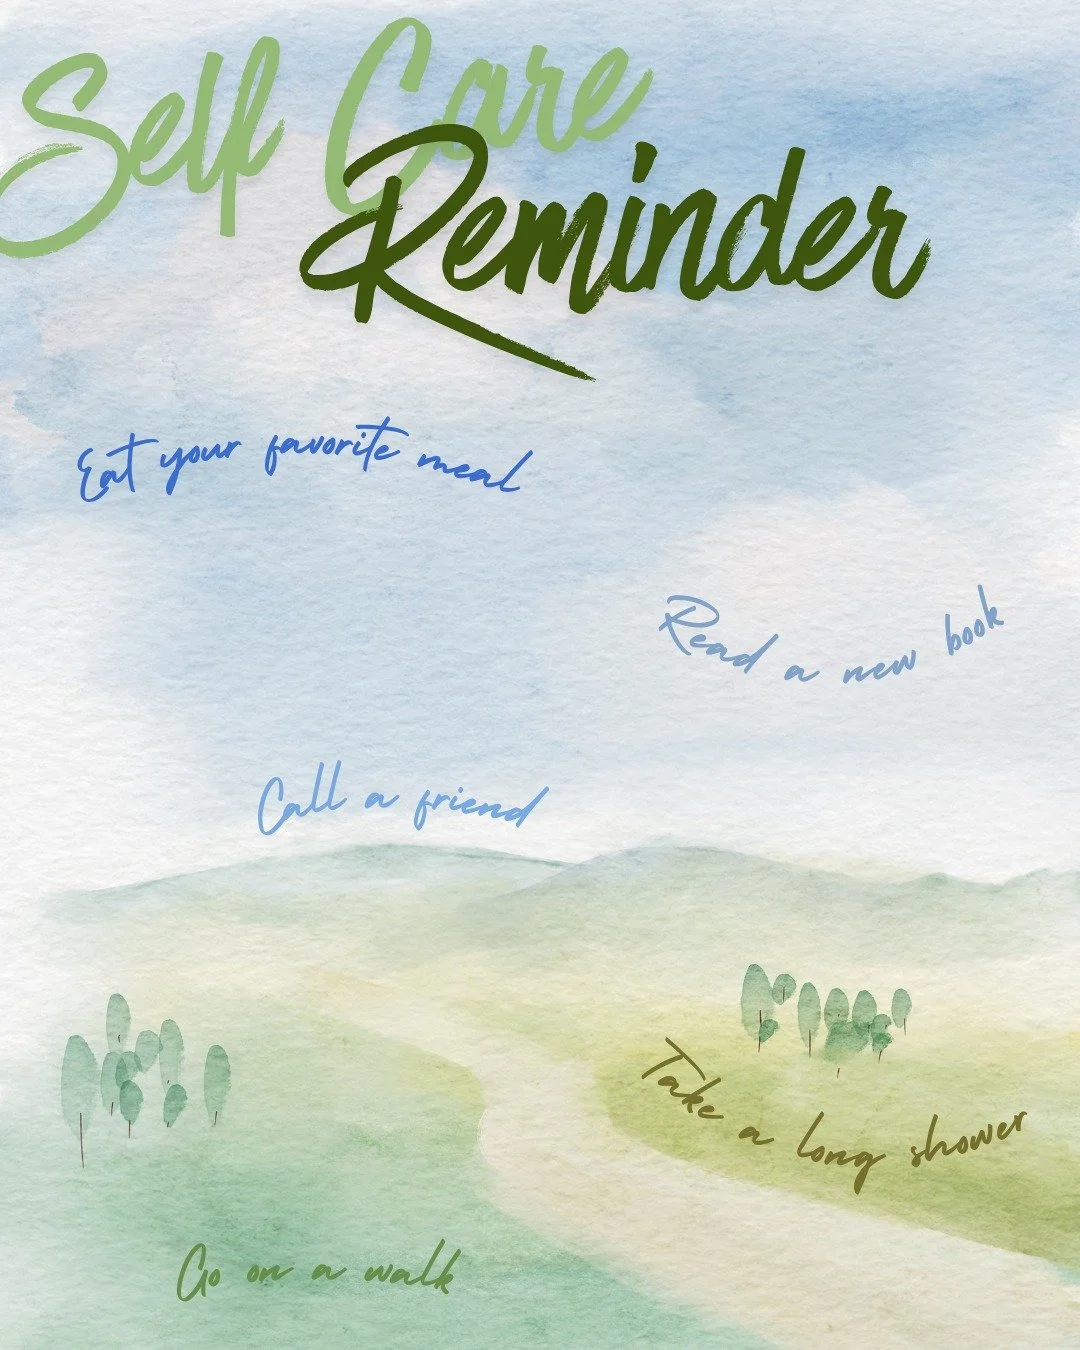 Self Care
Reminder
Eat your favorite meal
Read a new book
Call a friend
Take a long shower
Go on a walk